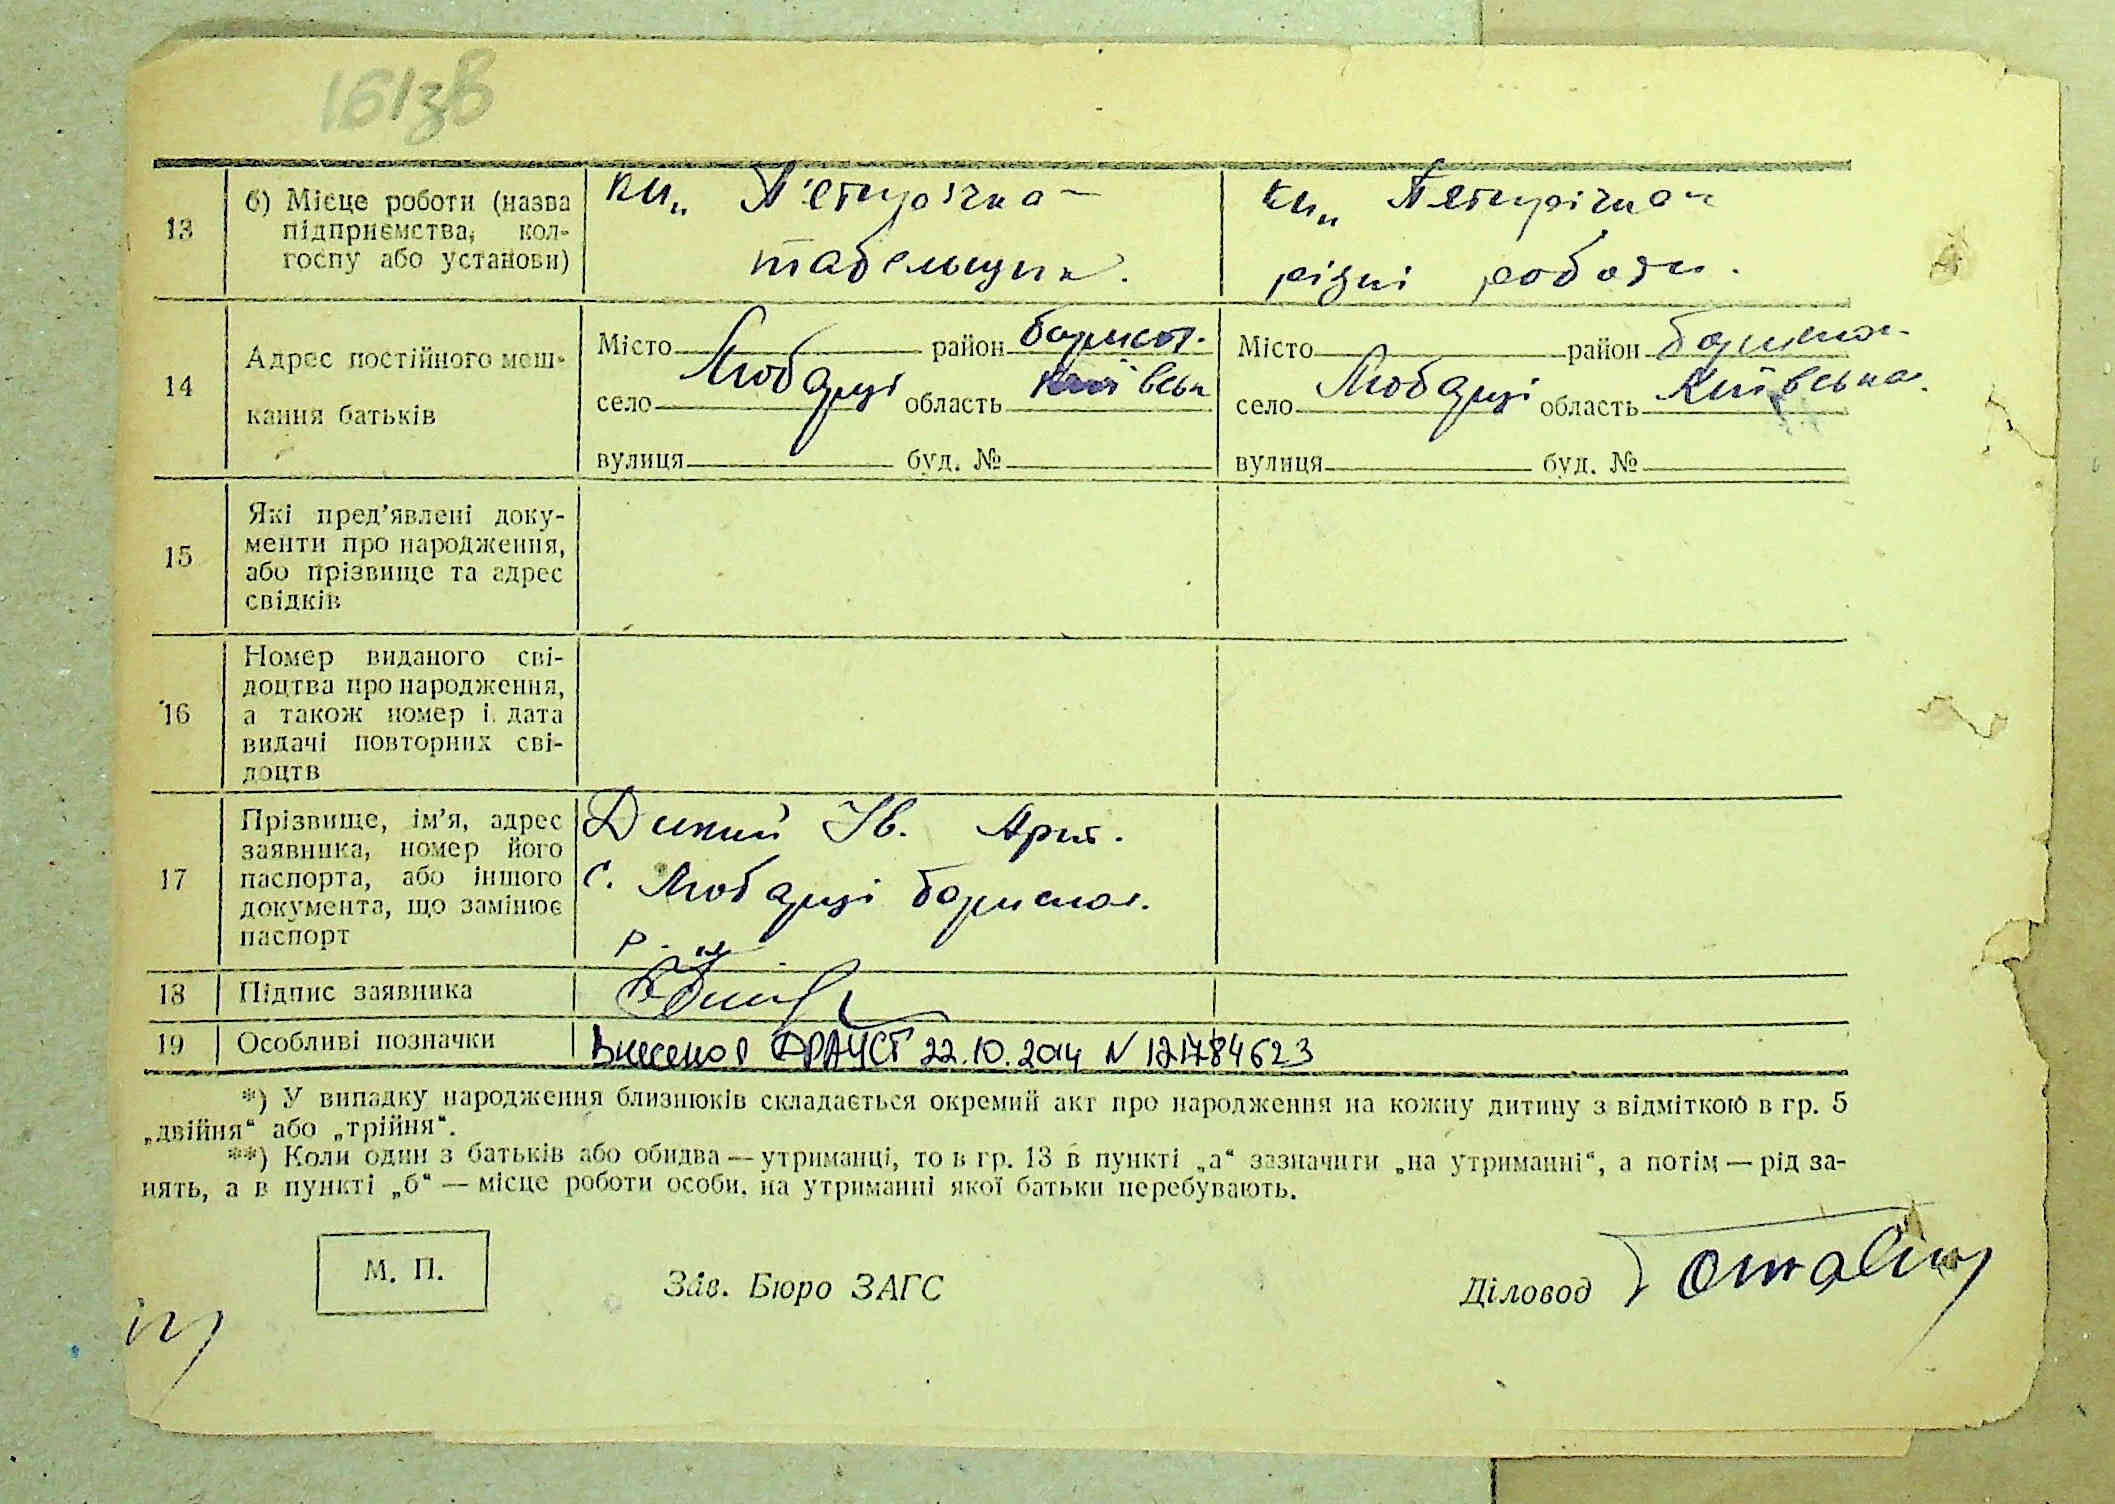 161зв
13
б) Місце роботи (назва
підприємства, кол-
госпу або установи)
км„ П'ятирічка"
табельщик.
км„ П'ятирічка"
різні роботи.
14
Адрес постійного меш-
кання батьків
Місто район Бориспол.
село Любарці область Київськ
вулиця буд. №
Місто район Бориспол.
село Любарці область Київська
вулиця буд. №
15
Які пред'явлені доку-
менти про народження,
або прізвище та адрес
свідків
16
Номер виданого сві-
доцтва про народження,
а також номер і дата
видачі повторних сві-
доцтв
17
Прізвище, ім'я, адрес
заявника, номер його
паспорта, або іншого
документа, що замінює
паспорт
Дикий Ів.
с. Любарці Бориспол.
р.
18
Підпис заявника
19
Особливі позначки
Внесено в ДРАЦСГ 22.10.2014 N 121784623
*) У випадку народження близнюків складається окремий акт про народження на кожну дитину з відміткою в гр. 5
„двійня“ або „трійня“.
**) Коли один з батьків або обидва — утриманці, то в гр. 13 в пункті „а“ зазначити „на утриманні“, а потім — рід за-
нять, а в пункті „б“ — місце роботи особи, на утриманні якої батьки перебувають.
М. П.
Зав. Бюро ЗАГС
Діловод